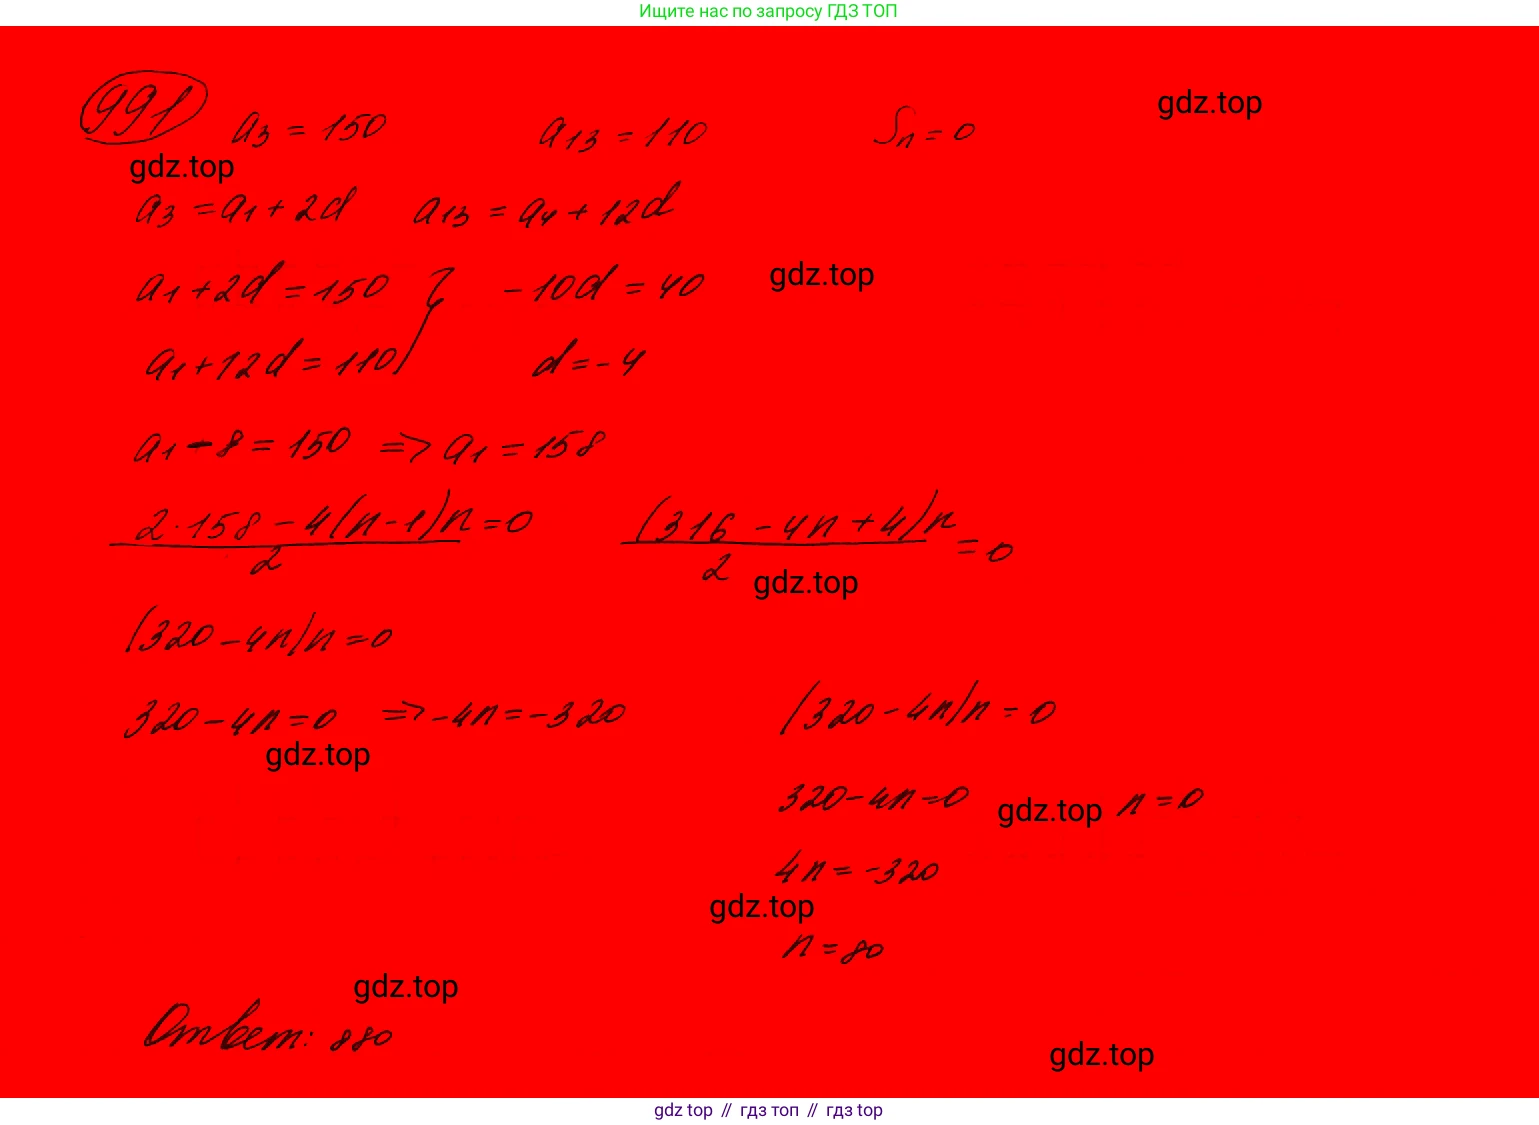 Ищите нас по запросу ГДЗ ТОП
991 a₃ = 150 a₁₃ = 110 Sₙ = 0
gdz.top
gdz.top
a₃ = a₁ + 2d a₁₃ = a₁ + 12d
a₁ + 2d = 150 } -10d = 40
gdz.top
a₁ + 12d = 110 d = -4
a₁ - 8 = 150 => a₁ = 158
(2·158 - 4(n-1))n/2 = 0 (316 - 4n + 4)n/2 = 0
gdz.top
(320 - 4n)n = 0
320 - 4n = 0 => -4n = -320 (320 - 4n)n = 0
gdz.top
320 - 4n = 0 gdz.top n = 0
4n = -320
gdz.top
n = 80
gdz.top
Ответ: 880
gdz.top
gdz top // гдз топ // гдз top